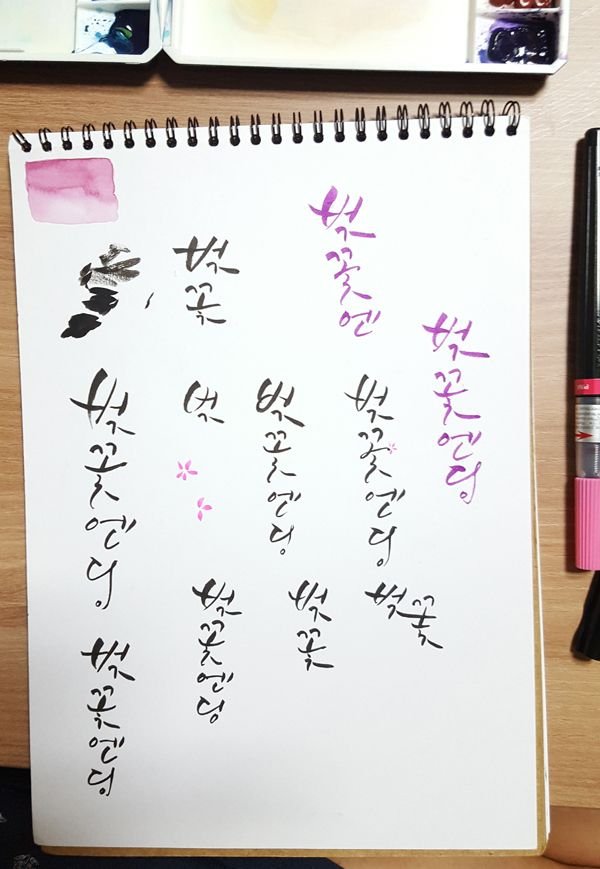 벚꽃엔
벚꽃
벚꽃엔딩
벚꽃엔딩
벚
벚꽃엔딩
벚꽃엔딩
벚꽃엔딩
벚꽃
벚꽃
벚꽃엔딩